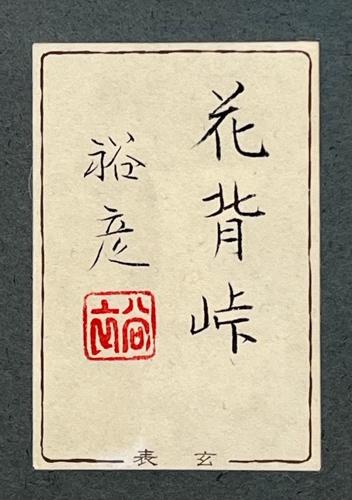 花背峠
裕彦
裕
玄表